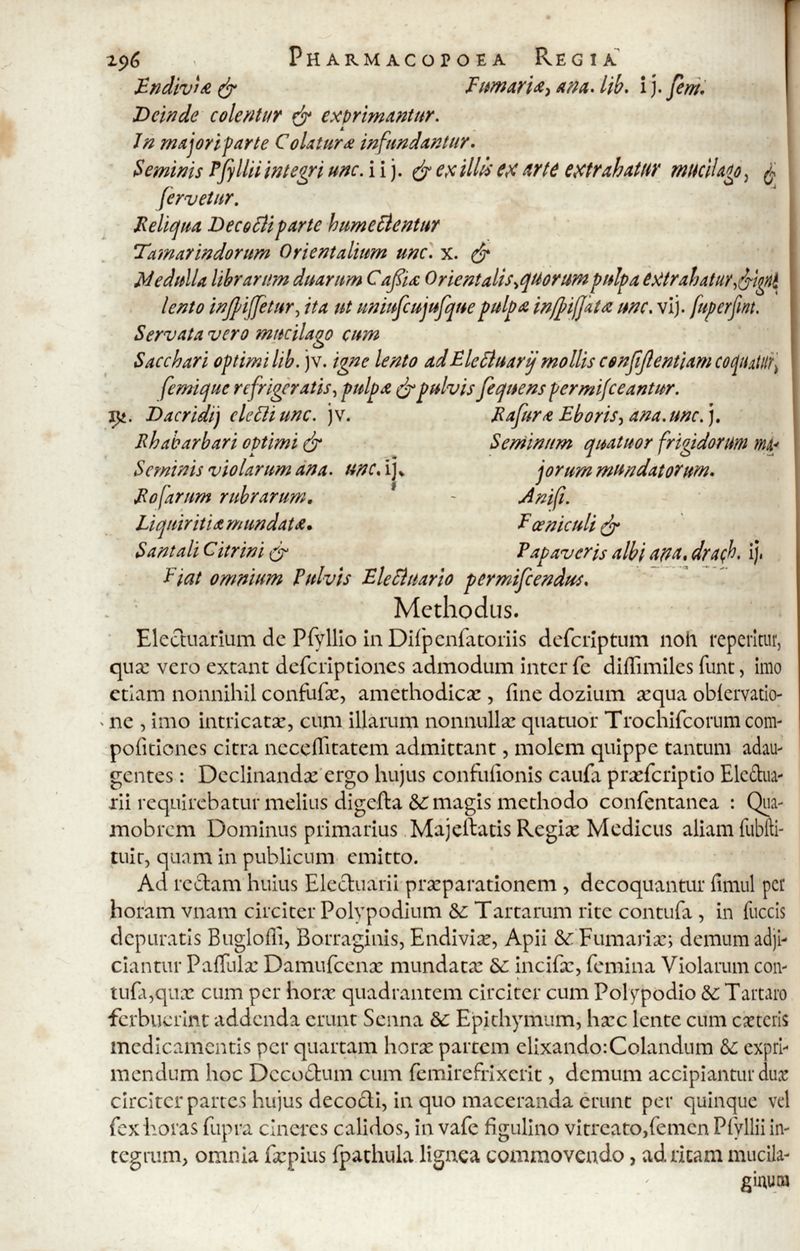 296 PHARMACOPOEA REGIA
Endiviæ & Fumariæ, ana. lib. ij. sem.
Deinde colentur & exprimantur.
In majori parte Colaturæ infundantur.
Seminis Psyllii integri unc. iij. & ex illis ex arte extrahatur mucilago, &
servetur.
Reliqua Decocti parte humectentur
Tamarindorum Orientalium unc. x. &
Medulla librarum duarum Cassiæ Orientalis, quorum pulpa extrahatur, & igni
lento inspissetur, ita ut uniuscujusque pulpæ inspissatæ unc. vij. supersint.
Servata vero mucilago cum
Sacchari optimi lib. jv. igne lento ad Electuarij mollis consistentiam coquatur,
semique refrigeratis, pulpæ & pulvis sequens permisceantur.
℞. Dacridij electi unc. jv. Rasuræ Eboris, ana. unc. j.
Rhabarbari optimi & Seminum quatuor frigidorum ma-
Seminis violarum ana. unc. ij. jorum mundatorum.
Rosarum rubrarum. Anisi.
Liquiritiæ mundatæ. Fœniculi &
Santali Citrini & Papaveris albi ana. drach. ij.
Fiat omnium Pulvis Electuario permiscendus.
Methodus.
Electuarium de Psyllio in Dispensatoriis descriptum non reperitur,
quæ vero extant descriptiones admodum inter se dissimiles sunt, imo
etiam nonnihil confusæ, amethodicæ, sine dozium æqua observatio-
ne, imo intricatæ, cum illarum nonnullæ quatuor Trochiscorum com-
positiones citra necessitatem admittant, molem quippe tantum adau-
gentes: Declinandæ ergo hujus confusionis causa præscriptio Electua-
rii requirebatur melius digesta & magis methodo consentanea: Qua-
mobrem Dominus primarius Majestatis Regiæ Medicus aliam substi-
tuit, quam in publicum emitto.
Ad rectam huius Electuarii præparationem, decoquantur simul per
horam vnam circiter Polypodium & Tartarum rite contusa, in succis
depuratis Buglossi, Borraginis, Endiviæ, Apii & Fumariæ; demum adji-
ciantur Passulæ Damuscenæ mundatæ & incisæ, semina Violarum con-
tusa, quæ cum per horæ quadrantem circiter cum Polypodio & Tartaro
ferbuerint addenda erunt Senna & Epithymum, hæc lente cum cæteris
medicamentis per quartam horæ partem elixando: Colandum & expri-
mendum hoc Decoctum cum semirefrixerit, demum accipiantur duæ
circiter partes hujus decocti, in quo maceranda erunt per quinque vel
sex horas supra cineres calidos, in vase figulino vitreato, semen Psyllii in-
tegrum, omnia sæpius spathula lignea commovendo, ad ritam mucila-
ginum